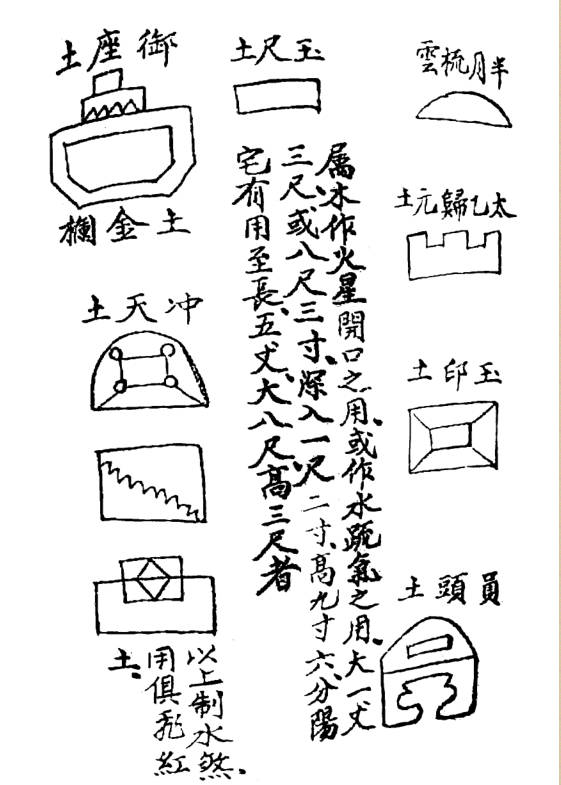 半月梳雲
太乙歸元土
玉印土
員頭土
玉尺土
属水作火星開口之用、或作水疏氣之用、大一丈
三尺、或八尺三寸、深入一尺二寸、高九寸六分、陽
宅有用至長、五丈、大八尺高三尺者
御座土
土金欄
冲天土
以上制水煞、
用俱紅
土、